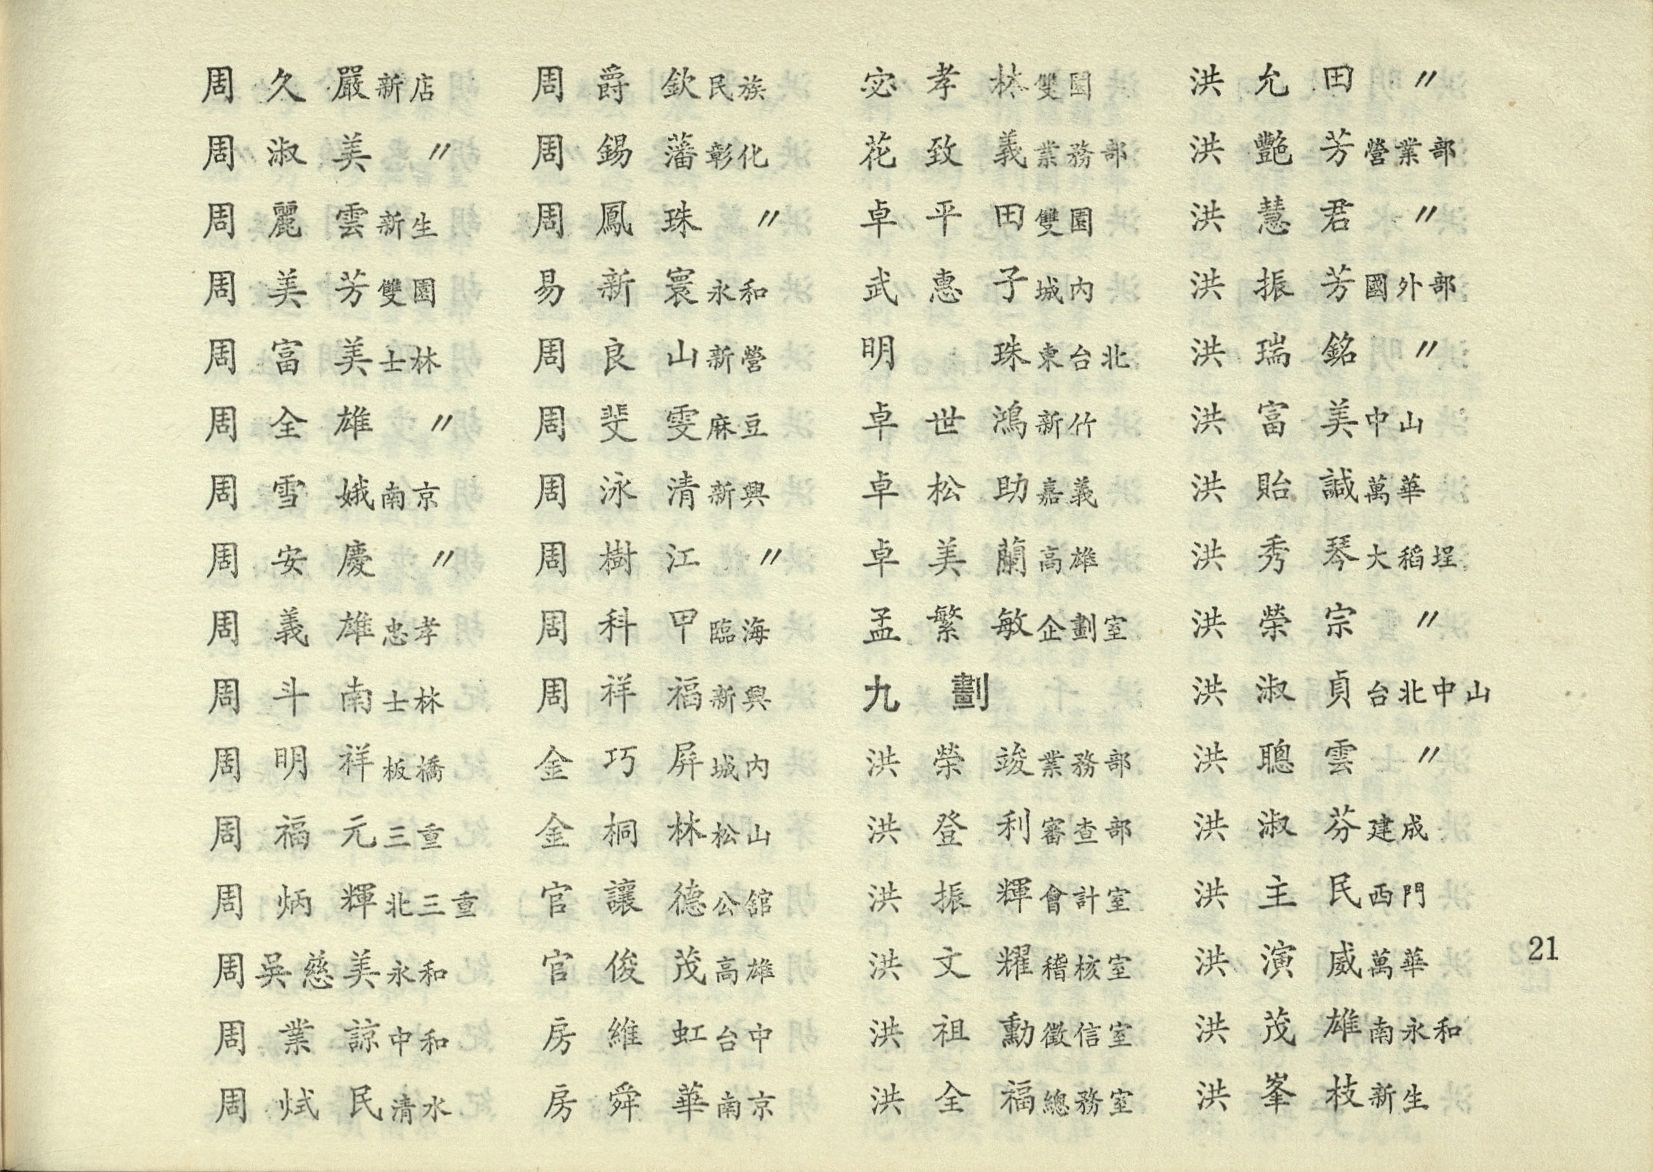 周久嚴新店
周淑美 〃
周麗雲新生
周美芳雙園
周富美士林
周全雄 〃
周雪娥南京
周安慶 〃
周義雄忠孝
周斗南士林
周明祥板橋
周福元三重
周炳輝北三重
周吳慈美永和
周業諒中和
周烒民清水
周爵欽民族
周錫藩彰化
周鳳珠 〃
易新寰永和
周良山新營
周斐雯麻豆
周泳清新興
周樹江 〃
周科甲臨海
周祥福新興
金巧屏城內
金桐林松山
官讓德公舘
官俊茂高雄
房維虹台中
房舜華南京
宓孝林雙園
花致義業務部
卓平田雙園
武惠子城內
明珠東台北
卓世鴻新竹
卓松助嘉義
卓美蘭高雄
孟繁敏企劃室
九劃
洪榮竣業務部
洪登利審查部
洪振輝會計室
洪文耀稽核室
洪祖勳徵信室
洪全福總務室
洪允田 〃
洪艷芳營業部
洪慧君 〃
洪振芳國外部
洪瑞銘 〃
洪富美中山
洪貽誠萬華
洪秀琴大稻埕
洪榮宗 〃
洪淑貞台北中山
洪聰雲 〃
洪淑芬建成
洪主民西門
洪演威萬華
洪茂雄南永和
洪峯枝新生
21